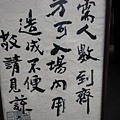 需人數到齊
方可入場內用
造成不便
敬請見諒